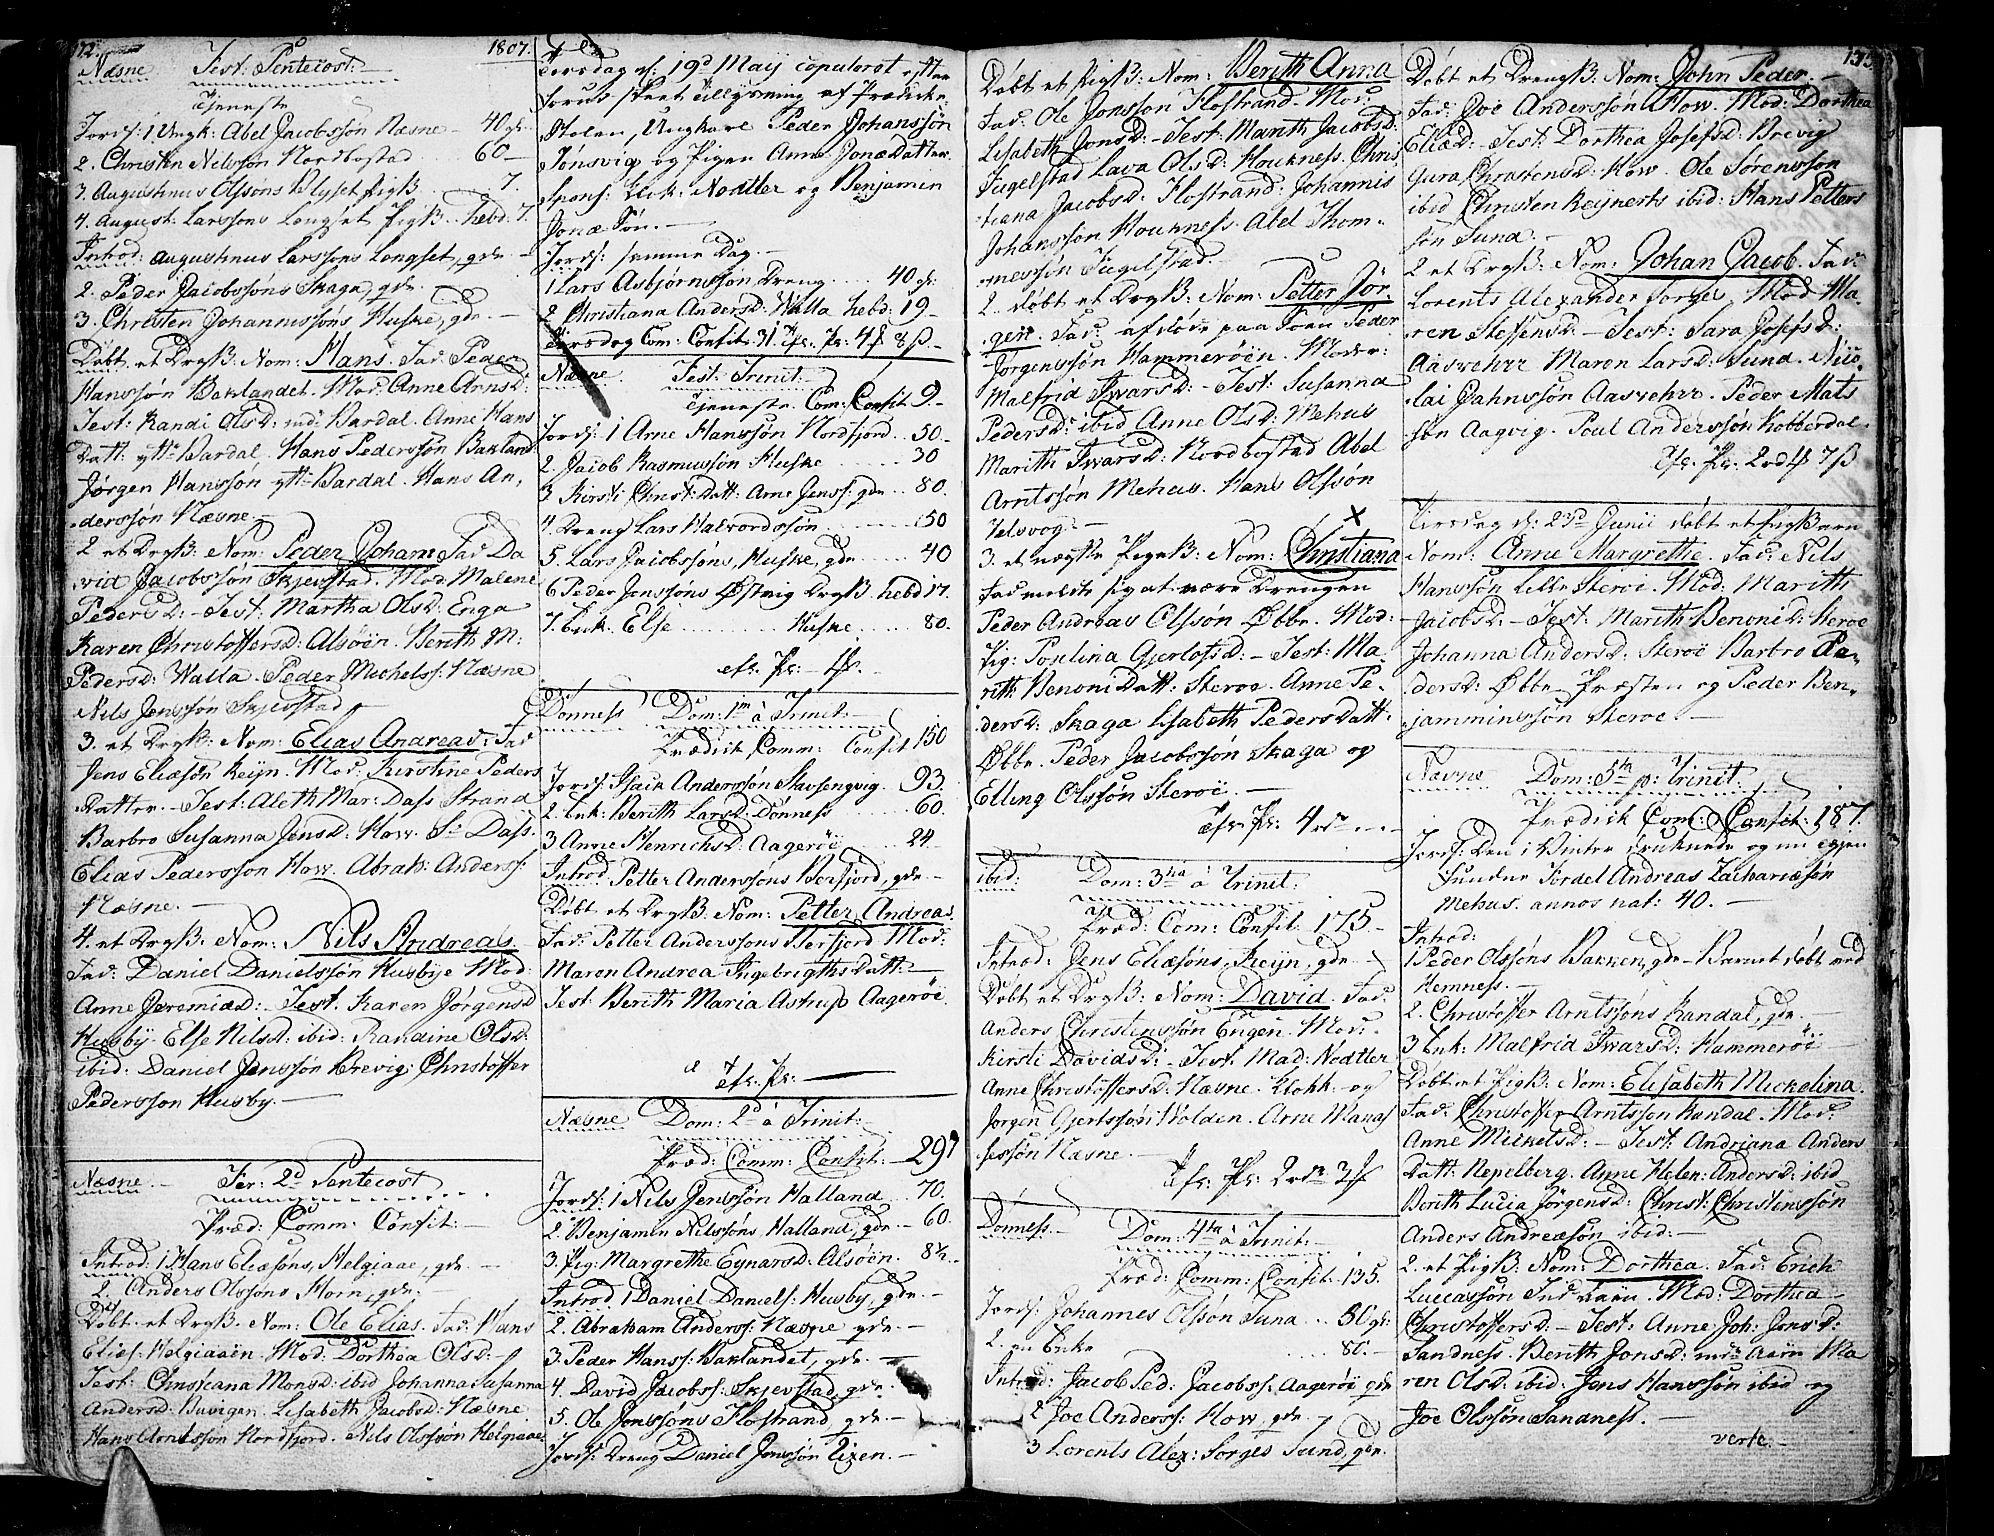 1807.
Næsne Fest: Pentecost:
Tjeneste
Jords: 1 Ungk: Abel Jacobssøn Næsne 40 gl:
2. Christen Nilssøn Nordbostad 60
3. Augustinus Olssøns Pigß 7.
4. August: Larssøns Longset Pigß hebd. 7.
Introd: Augustinus Larssøns Longset, qde
2. Peder Jacobssøns Skaga, qde.
3. Christen Johannissøns Huske, qde.
Døbt et Drgß: Nom: Hans. Fad: Peder
Hanssøn Baklandet. Mod: Anne Arnsd:
Test: Randi Olsd: Bardal. Anne Hans
Datt: ytt: Bardal. Hans Pedersson Bakland:
Jørgen Hanssøn ytt: Bardal. Hans An,
derssøn Næsne.
2 et Drgß: Nom: Peder Johan Fad Da
vid Jacobssøn Skjevstad. Mod: Malene
Pedersd: Test: Martha Olsd: Enga
Karen Christoffersd: Alsøen. Berith M:
Pedersd: Walla. Peder Michelss: Næsne
Nils Jenssøn Skjevstad
3. et Drgß: Nom: Elias Andreas: Fad
Jens Eliæsøn Reijn. Mod: Kirstine Peders
Datter. Test: Aleth Mar: Dass Strand
Barbro Susanna Jensd: How. Dass.
Elias Pederssøn How. Abrah: Anderss:
Næsne.
4. et Drgß: Nom: Nils Andreas
Fad: Daniel Danielssøn Husbye Mod:
Anne Jeremiæd: Test. Karen Jørgensd
Husby. Else Nilsd: ibid: Randine Olsd:
ibid: Daniel Jenssøn Brevig. Christoffer
Pederssøn Husby.
Næsne Fer: 2d Pentecost
Præd: Comm: Confit:
Introd: 1 Hans Eliæsøns, Helgiaae, qde.
2. Anders Olssøns Horn, qde.
Døbt et Drgß. Nom: Ole Elias. Fad: Hans
Elias: Helgiaaen. Mod: Dorthea Olsd:
Test: Christiana Monsd: ibid Johanna Susanna
Andersd: Buvigen. Lisabeth Jacobsd: Næsne
Hans Arntssøn Nordfjord. Nils Olssøn Helgiaae
Torsdag d: 19d Maij copuleret efter
forud skeet Tillysning af Prædicke
Stolen, Ungkarl Peder Johanssøn
Jønsvig og Pigen Anne Jonædatter.
Spons: Klok: Nodtler og Benjamin
Jonæ Søn.
Jords: samme Dag.
1 Lars Asbjørnssøn Dreng 40 gl:
2 Christiana Andersd: Walla hebd: 19
Tiirsdag Com: Confit: 31.
Næsne Fest: Trinit:
Tjeneste. Com: Confit 9.
Jords: 1 Arne Hanssøn Nordfjord 50
2. Jacob Rasmussøn Huske 30
3 Kirsti Christ: Datt: Arne Jenss: qde 80.
4 Dreng Lars Halvordssøn 150
5. Lars Jacobssøns, Huske, qde 40
6 Peder Jonssøns Østvig Drgß hebd 17.
7. Enk: Else Huske 80.
Dønness Dom: 1m à Trinit:
Prædick Comm: Confit 150
Jords: Isach Anderssøn Skavsengvig. 93.
2. Enk: Berith Larsd: Dønness 60.
3 Anne Henrichsd: Aagerøe 24
Introd: Petter Anderssøns Berfjord, qde
Døbt et Drgß: Nom: Petter Andreas.
Fad: Petter Anderssøns Berfjord Mod:
Maren Andrea Ingebrigths Datt:
Test: Berith Maria Astrup Aagerøe
Næsne Dom: 2d à Trinit:
Præd: Comm: Confit: 291
Jords: 1 Nils Jenssøn Halland 70.
2. Benjamin Nilssøns Halland, qde 60.
3. Pig: Margrethe Eynarsd: Alsøen. 8½
Introd: 1 Daniel Daniels: Husby, qde.
2. Abraham Anderss: Næsne qde.
3. Peder Hanss: Baklandet, qde.
4. David Jacobss: Skjevstad, qde.
5. Ole Jonssøns Flostrand, qde.
Jords: Dreng Daniel Jonssøn
Døbt et Pigß: Nom: Berith Anna
Fad: Ole Jonssøn Flostrand. Mod:
Lisabeth Jonsd: Test: Marith Jacobsd:
Fugelstad Lava Olsd: Houkness. Chris
tiana Jacobsd: Flostrand. Johannis
Johanssøn Houkness. Abel Thom
nessøn Fugelstad.
2. døbt et Drgß: Nom: Petter Jør
gen. Fad: afdøde paa Søen Peder
Jørgenssøn Hammerøen. Moder:
Malfrid Iwarsd: Test: Susanna
Pedersd: ibid Anne Olsd: Mehus
Marith Iwarsd: Nordbostad Abel
Arntssøn Mehus. Hans Olssøn
Velsvog.
3. et uægte Pigß: Nom: Christiana
Fad meldte sig at være Drengen
Peder Andreas Olssøn Øbbe. Mod:
Pig: Poulina Gjerlofsd: Test: Ma
rith Benoni Datt: Sterøe. Anne Pe
dersd: Skaga Lisabeth Peders Datt:
Øbbe. Peder Jacobssøn Skaga og
Elling Olssøn Sterøe.
ibid: Dom: 3tia à Trinit:
Præd: Com: Confit: 175
Introd: Jens Eliæsøns, Reijn, qde.
Døbt et Drgß: Nom: David. Fad:
Anders Christenssøn Engen. Mod:
Kirsti Davidsd: Test: Mad: Nodtler
Anne Christoffersd: Næsne. Klokk: og
Jørgen Gjertssøn Holden. Arne Manas
sessøn Næsne.
Dønness. Dom: 4ta à Trinit:
Præd: Comm: Confit 135.
Jords: Johannes Olssøn Tuna 30 gl:
2. en Enke 80.
Introd: Jacob Ped: Jacobss: Aagerøe qde
2 Joe Anderss: How, qde.
3 Lorents Alex: Sørges Sund, qde.
Døbt et Drengß: Nom: John Peder.
Fad: Joe Anderssøn How. Mod: Dorthea
Eliæd: Test: Dorthea Josefsd: Brevig
Gura Christensd: How. Ole Sørenssøn
ibid Christen Reijnerts ibid: Hans Petters
søn Sund.
2 et Drgß: Nom: Johan Jacob. Fad:
Lorents Alexander Sørges. Mod Ma
ren Steffensd: Test: Sara Josefsd:
Aasvehrr Maren Larsd: Sund. Nico
lai Jahnssøn Aasvehrr. Peder Mats
søn Aagvig. Poul Anderssøn Kobberdal.
Tiirsdag d: 23d Junii døbt et Pigebarn
Nom: Anne Margrethe. Fad: Nils
Hanssøn Lille Sterøe. Mod: Marith
Jacobsd: Test: Marith Benonid: Sterøe
Johanna Andersd: Sterøe Barbro Pe
dersd: Øbbe Præsten og Peder Ben,
jaminssøn Sterøe.
Næsne Dom: 5ta p: Trinit:
Prædick Com: Confit: 187.
Jords: Den i Vinter druknede og nu igjen
fundne Fordel Andreas Zachariæsøn
Mehus. annos nat: 40.
Introd:
1 Peder Olssøns Bakken, qde Barnet døbt ved
Hemness.
2. Christoffer Arntssøns Randal, qde.
3 Enk: Malfrid Iwarsd: Hammerøe
Døbt et Pigß: Nom: Elisabeth Mickelina.
Fad: Christoffer Arntssøn Randal. Mod:
Anne Mickelsd: Test: Andriana Anders
Datt: Nepelberg. Anne Helen: Andersd: ibid
Berith Lucia Jørgensd: Christ: Christenssøn
Anders Andreæsøn ibid:
2. et Pigß: Nom: Dorthea. Fad: Erich
Luccassøn Indviin. Mod: Dorthea
Christoffersd: Test: Anne Joh: Jonsd:
Sandness. Berith Jonsd: Ma
ren Olsd: ibid: Jens Hanssøn ibid og
Joe Olssøn Sandness.
verte.